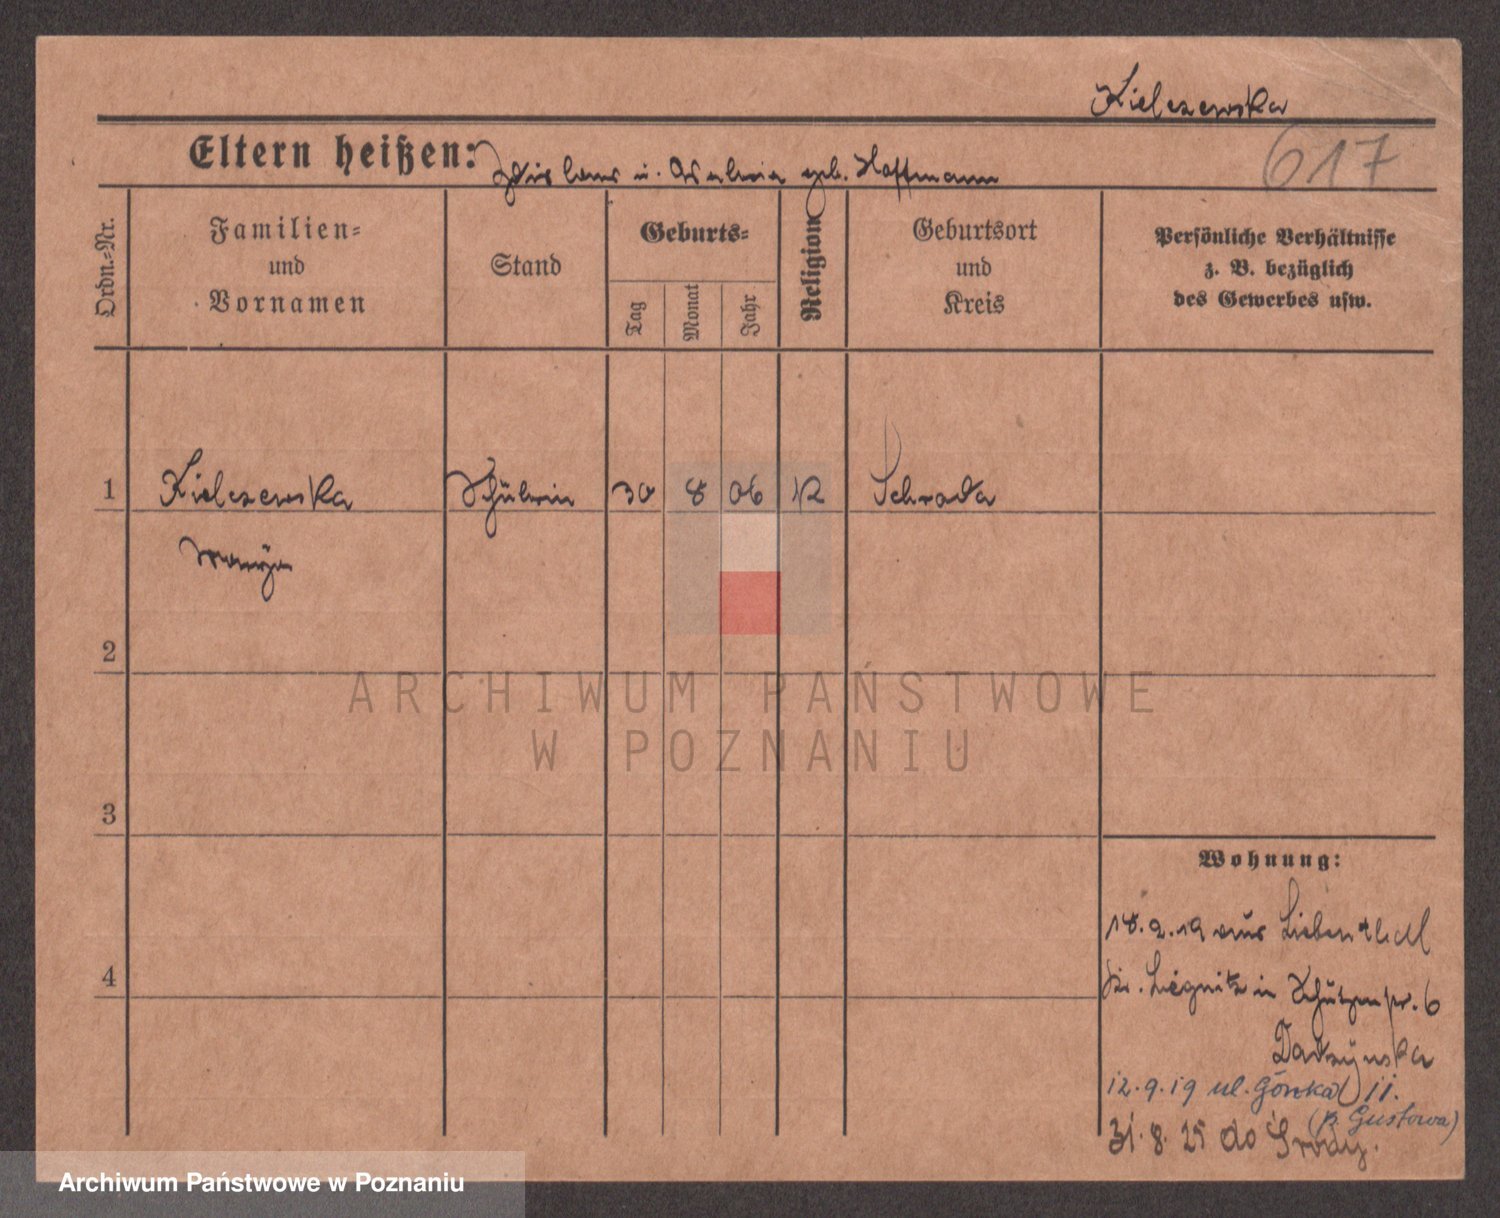 Kielczewska
617
Eltern heißen: u. geb. Hoffmann
Ordn.-Nr.
Familien- und Vornamen
Stand
Geburts-
Tag
Monat
Jahr
Religion
Geburtsort und Kreis
Persönliche Verhältnisse z. B. bezüglich des Gewerbes usw.
1 Kielczewska Schülerin 30 8 06 K Schroda
Marya
2
ARCHIWUM PAŃSTWOWE
W POZNANIU
3
Wohnung:
18.2.19 aus Liebenthal
4
Liegnitz in Schützenstr. 6
12.9.19 ul. Górska 11.
(p. Gustowa)
31.8.25 do Środy.
Archiwum Państwowe w Poznaniu